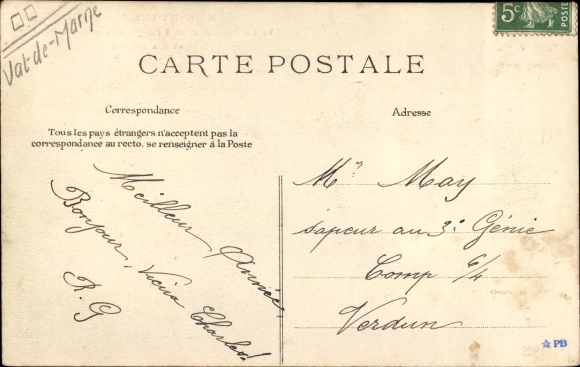 Val-de-Marne
5c
POSTES
CARTE POSTALE
Correspondance
Tous les pays étrangers n'acceptent pas la
correspondance au recto. se renseigner à la Poste
Meilleur Année
Bonjour, Vieux Charles!
R. G
Adresse
Mr May
sapeur au 3e Génie
Comp 6/4
Verdun
PB